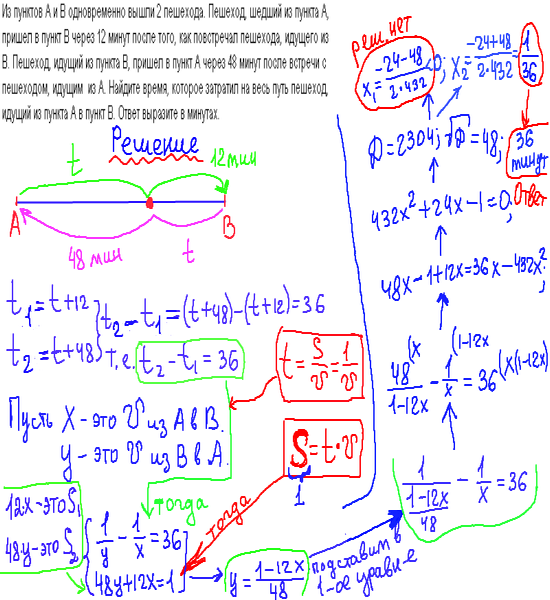 Из пунктов А и В одновременно вышли 2 пешехода. Пешеход, шедший из пункта А,
пришел в пункт В через 12 минут после того, как повстречал пешехода, идущего из
В. Пешеход, идущий из пункта В, пришел в пункт А через 48 минут после встречи с
пешеходом, идущим из А. Найдите время, которое затратил на весь путь пешеход,
идущий из пункта А в пункт В. Ответ выразите в минутах.
Решение
t 12 мин
A B
48 мин t
t₁ = t+12
t₂ = t+48
t₂ - t₁ = (t+48)-(t+12) = 36
т.е. t₂ - t₁ = 36
t = S/υ = 1/υ
Пусть X - это υ из А в В.
у - это υ из В в А.
S = t·υ
1
12x - это S₁
48y - это S₂
тогда
тогда
1/y - 1/x = 36
48y+12x=1
y = (1-12x)/48
подставим в
1-ое уравн-е
1/((1-12x)/48) - 1/x = 36
48(x/(1-12x) - 1(1-12x/x = 36(x(1-12x)
48x-1+12x=36x-432x²;
432x²+24x-1=0;
D=2304; √D=48;
реш. нет
x₁ = (-24-48)/(2·432) <0; x₂ = (-24+48)/(2·432) = 1/36
36
минут
Ответ